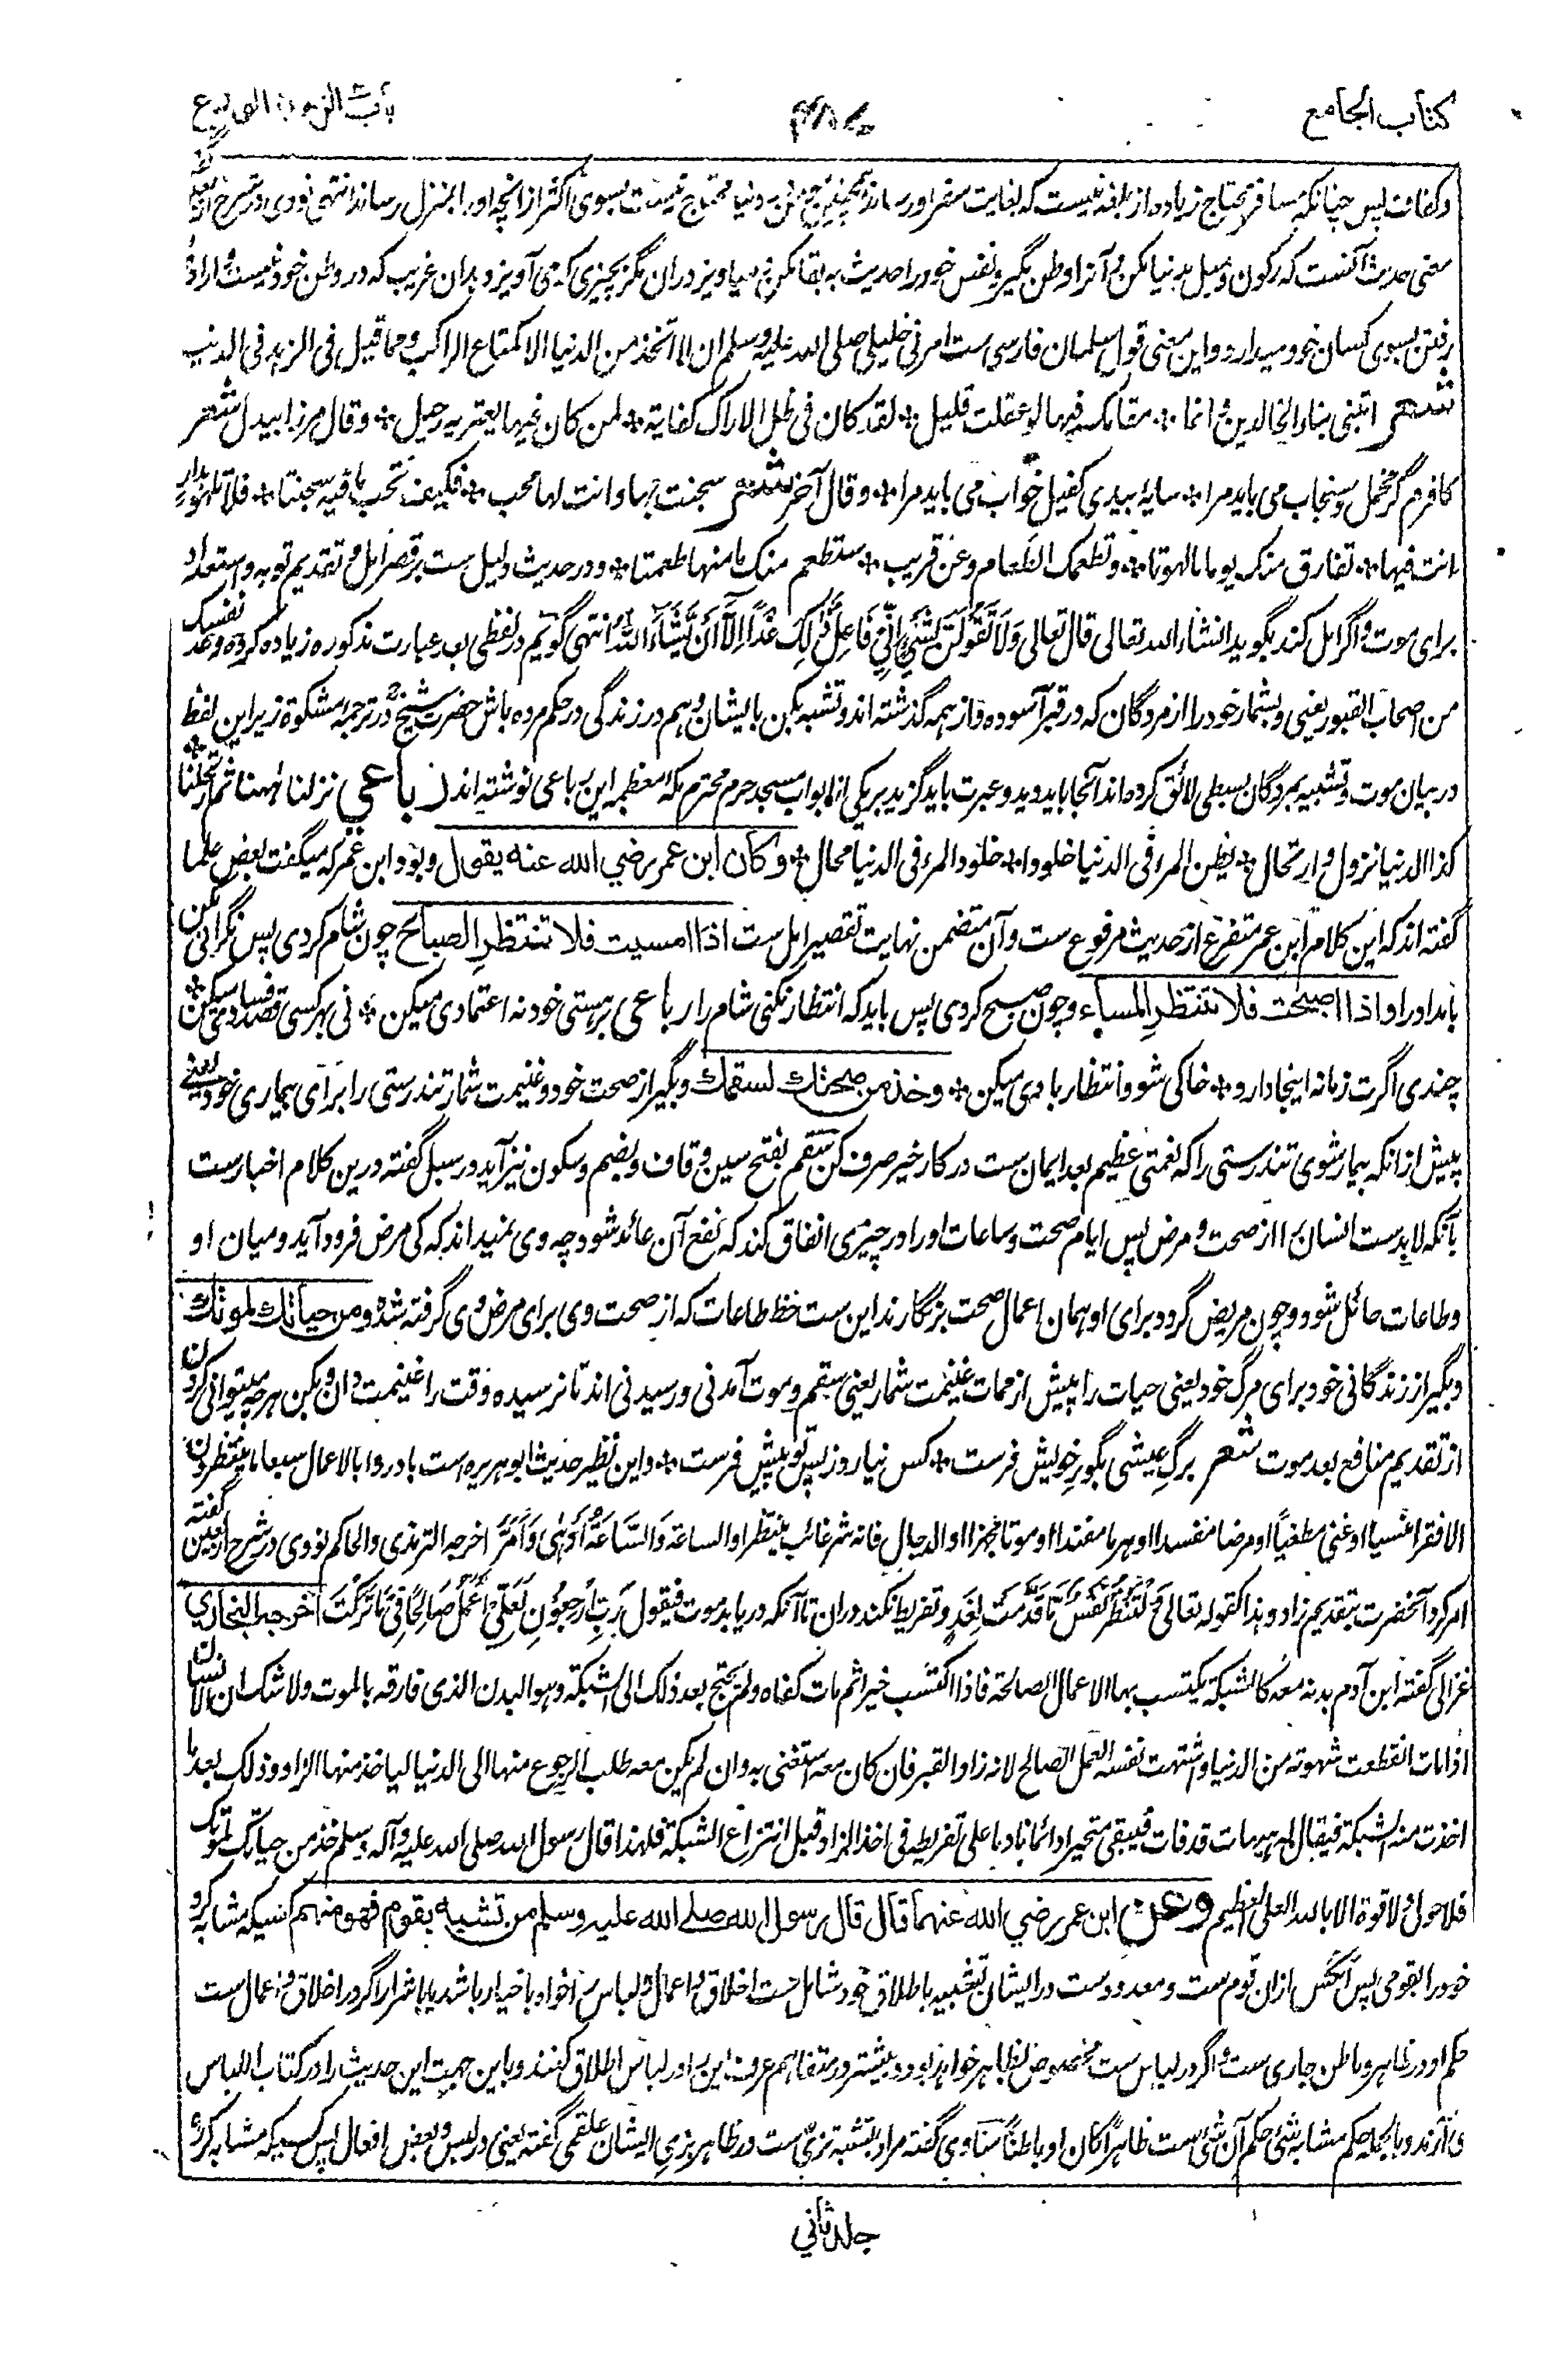 كتاب الجامع
باب الزهد والورع
وكفاف پس چنانکه مسافر محتاج زیاده از بلغه نیست که بغایت سفر اورساند همچنین مومن در دنیا محتاج نیست بسوی اکثر از آنچه اورا بمنزل رساند انتهی نووی در شرح اربعین گفته
معنی حدیث آنست که رکون و میل بدنیا مکن و آنرا وطن مگیر و نفس خود را حدیث به بقا مکن و میاویز دران مگر بچیزی که می آویزد بدان غریب که در وطن خود نیست و اراده
رفتن بسوی کسان خود میدارد و این معنی قول سلمان فارسی ست امرنی خلیلی صلی الله علیه وسلم ان لا اتخذ من الدنیا الا کمتاع الراکب ومما قیل فی الزهد فی الدنیا
شعر اتبنی بناء الخالدین وانما ❊ مقامک فیها لو عقلت قلیل ❊ لقد کان فی ظل الاراک کفایة ❊ لمن کان فیها یعتریه رحیل ❊ وقال مرزا بیدل شعر
کافرم گر مخمل و سنجاب می باید مرا ❊ سایه بیدی کفیل خواب می باید مرا ❊ وقال آخر شعر سجنت بها وانت لها محب ❊ فکیف تحب ما فیه سجنتا ❊ فلا تلهو بدار
انت فیها ❊ تفارق منک یوما ما لهوتا ❊ وتطعمک الطعام وعن قریب ❊ ستطعم منک ما منها طعمتا ❊ و در حدیث دلیل ست بر قصر امل و تقدیم توبه و استعداد
برای موت و اگر امل کند بگوید انشاء الله تعالی قال تعالی وَلَا تَقُولَنَّ لِشَيْءٍ إِنِّي فَاعِلٌ ذَٰلِكَ غَدًا إِلَّا أَن يَشَاءَ اللَّهُ انتهی گویم در لفظی بعد عبارت مذکوره زیاده کرده وعد نفسک
من اصحاب القبور یعنی و بشمار خود را از مردگان که در قبر آسوده و از همه گذشته اند و تشبه بکن بایشان و هم در زندگی در حکم مرده باش حضرت شیخ در ترجمه مشکوة زیر این لفظ
در بیان موت و تشبیه بمردگان بسطی لائق کرده اند آنجا باید دید و عبرت باید گزید بر یکی از ابواب مسجد حرم محترم مکه معظمه این رباعی نوشته اند رباعی نزلنا ههنا ثم ارتحلنا ❊
کذا الدنیا نزول وارتحال ❊ یظن المرء فی الدنیا خلودا ❊ خلود المرء فی الدنیا محال ❊ وکان ابن عمر رضي الله عنه يقول و بود ابن عمر که میگفت بعض علما
گفته اند که این کلام ابن عمر متفرع از حدیث مرفوع ست و آن متضمن نهایت تقصیر امل ست اذا امسيت فلا تنتظر الصباح چون شام کردی پس نگرانی مکن
بامداد را واذا اصبحت فلا تنتظر المساء و چون صبح کردی پس باید که انتظار نکنی شام را رباعی بر هستی خود نه اعتمادی میکن ❊ نی بر کسی قصد فسادی میکن ❊
چندی اگرت زمانه اینجا دارد ❊ خاکی شو و انتظار بادی میکن ❊ وخذ من صحتك لسقمك و بگیر از صحت خود و غنیمت شمار تندرستی را برای بیماری خود یعنے
پیش از آنکه بیمار شوی تندرستی را که نعمتی عظیم بعد ایمان ست در کار خیر صرف کن سقم بفتح سین و قاف و بضم و سکون نیز آید و در سبل گفته درین کلام اخبارست
بآنکه لابدست انسان را از صحت و مرض پس ایام صحت و ساعات اورا در چیزی انفاق کند که نفع آن عائد شود چه وی نمیداند که کی مرض فرود آید و میان او
و طاعات حائل شود و چون مریض گردد برای او همان اعمال صحت بنگارند این ست حظ طاعات که از صحت وی برای مرض وی گرفته شد ومن حياتك لموتك
و بگیر از زندگانی خود برای مرگ خود یعنی حیات را پیش از ممات غنیمت شمار یعنی سقم و موت آمدنی و رسیدنی اند تا نرسیده وقت را غنیمت دان و بکن هر چه میتوانی کردن
از تقدیم منافع بعد موت شعر برگ عیشی بگور خویش فرست ❊ کس نیارد ز پس تو پیش فرست ❊ و این نظیر حدیث ابو هریره است بادروا بالاعمال سبعا ما ینتظرون
الا فقرا منسیا او غنی مطغیا او مرضا مفسدا او هرما مفندا او موتا مجهزا او الدجال فانه شر غائب ینتظر او الساعة وَالسَّاعَةُ أَدْهَىٰ وَأَمَرُّ اخرجه الترمذی والحاکم نووی در شرح اربعین گفته
امر کرد آنحضرت بتقدیم زاد و هذا کقوله تعالی وَلْتَنظُرْ نَفْسٌ مَّا قَدَّمَتْ لِغَدٍ و تفریط نکند دران تا آنکه دریابد موت فیقول رَبِّ ارْجِعُونِ لَعَلِّي أَعْمَلُ صَالِحًا فِيمَا تَرَكْتُ اخرجه البخاري
غزالی گفته ابن آدم بدنه معه کالشبکة یکتسب بها الاعمال الصالحة فاذا اکتسب خیرا ثم مات کفاه ولم یحتج بعد ذلک الی الشبکة وهو البدن الذی فارقه بالموت ولا شک ان الانسان
اذا مات انقطعت شهوته من الدنیا واشتهت نفسه العمل الصالح لانه زاد القبر فان کان معه استغنی به وان لم یکن معه طلب الرجوع منها الی الدنیا لیاخذ منها الزاد وذلک بعد ما
اخذت منه الشبکة فیقال له هیهات قد فات فیبقی متحیرا دائما نادما علی تفریطه فی اخذ الزاد قبل انتزاع الشبکة فلهذا قال رسول الله صلی الله علیه وآله وسلم خذ من حیاتک لموتک
فلا حول ولا قوة الا بالله العلی العظیم وعن ابن عمر رضي الله عنهما قال قال رسول الله صلے الله عليه وسلم من تشبه بقوم فهو منهم کسیکه مشابه کرد
خود را بقومی پس آنکس ازان قوم ست و معدودست در ایشان تشبیه باطلاق خود شامل ست اخلاق و اعمال و لباس را خواه باخیار باشد یا باشرار اگر در اخلاق و اعمال ست
حکم او در ظاهر و باطن جاری ست و اگر در لباس ست مخصوص بظاهر خواهد بود و بیشتر در متفاهم عرف این را در لباس اطلاق کنند و باین جهت این حدیث را در کتاب اللباس
می آرند و بالجمله حکم مشابه شئ حکم آن شئ ست ظاهرا کان او باطنا مناوی گفته مراد بتشبه تزی ست در ظاهر بزی ایشان علقمی گفته یعنی در لبس و بعض افعال پس کسیکه مشابه کرد
جلد ثاني